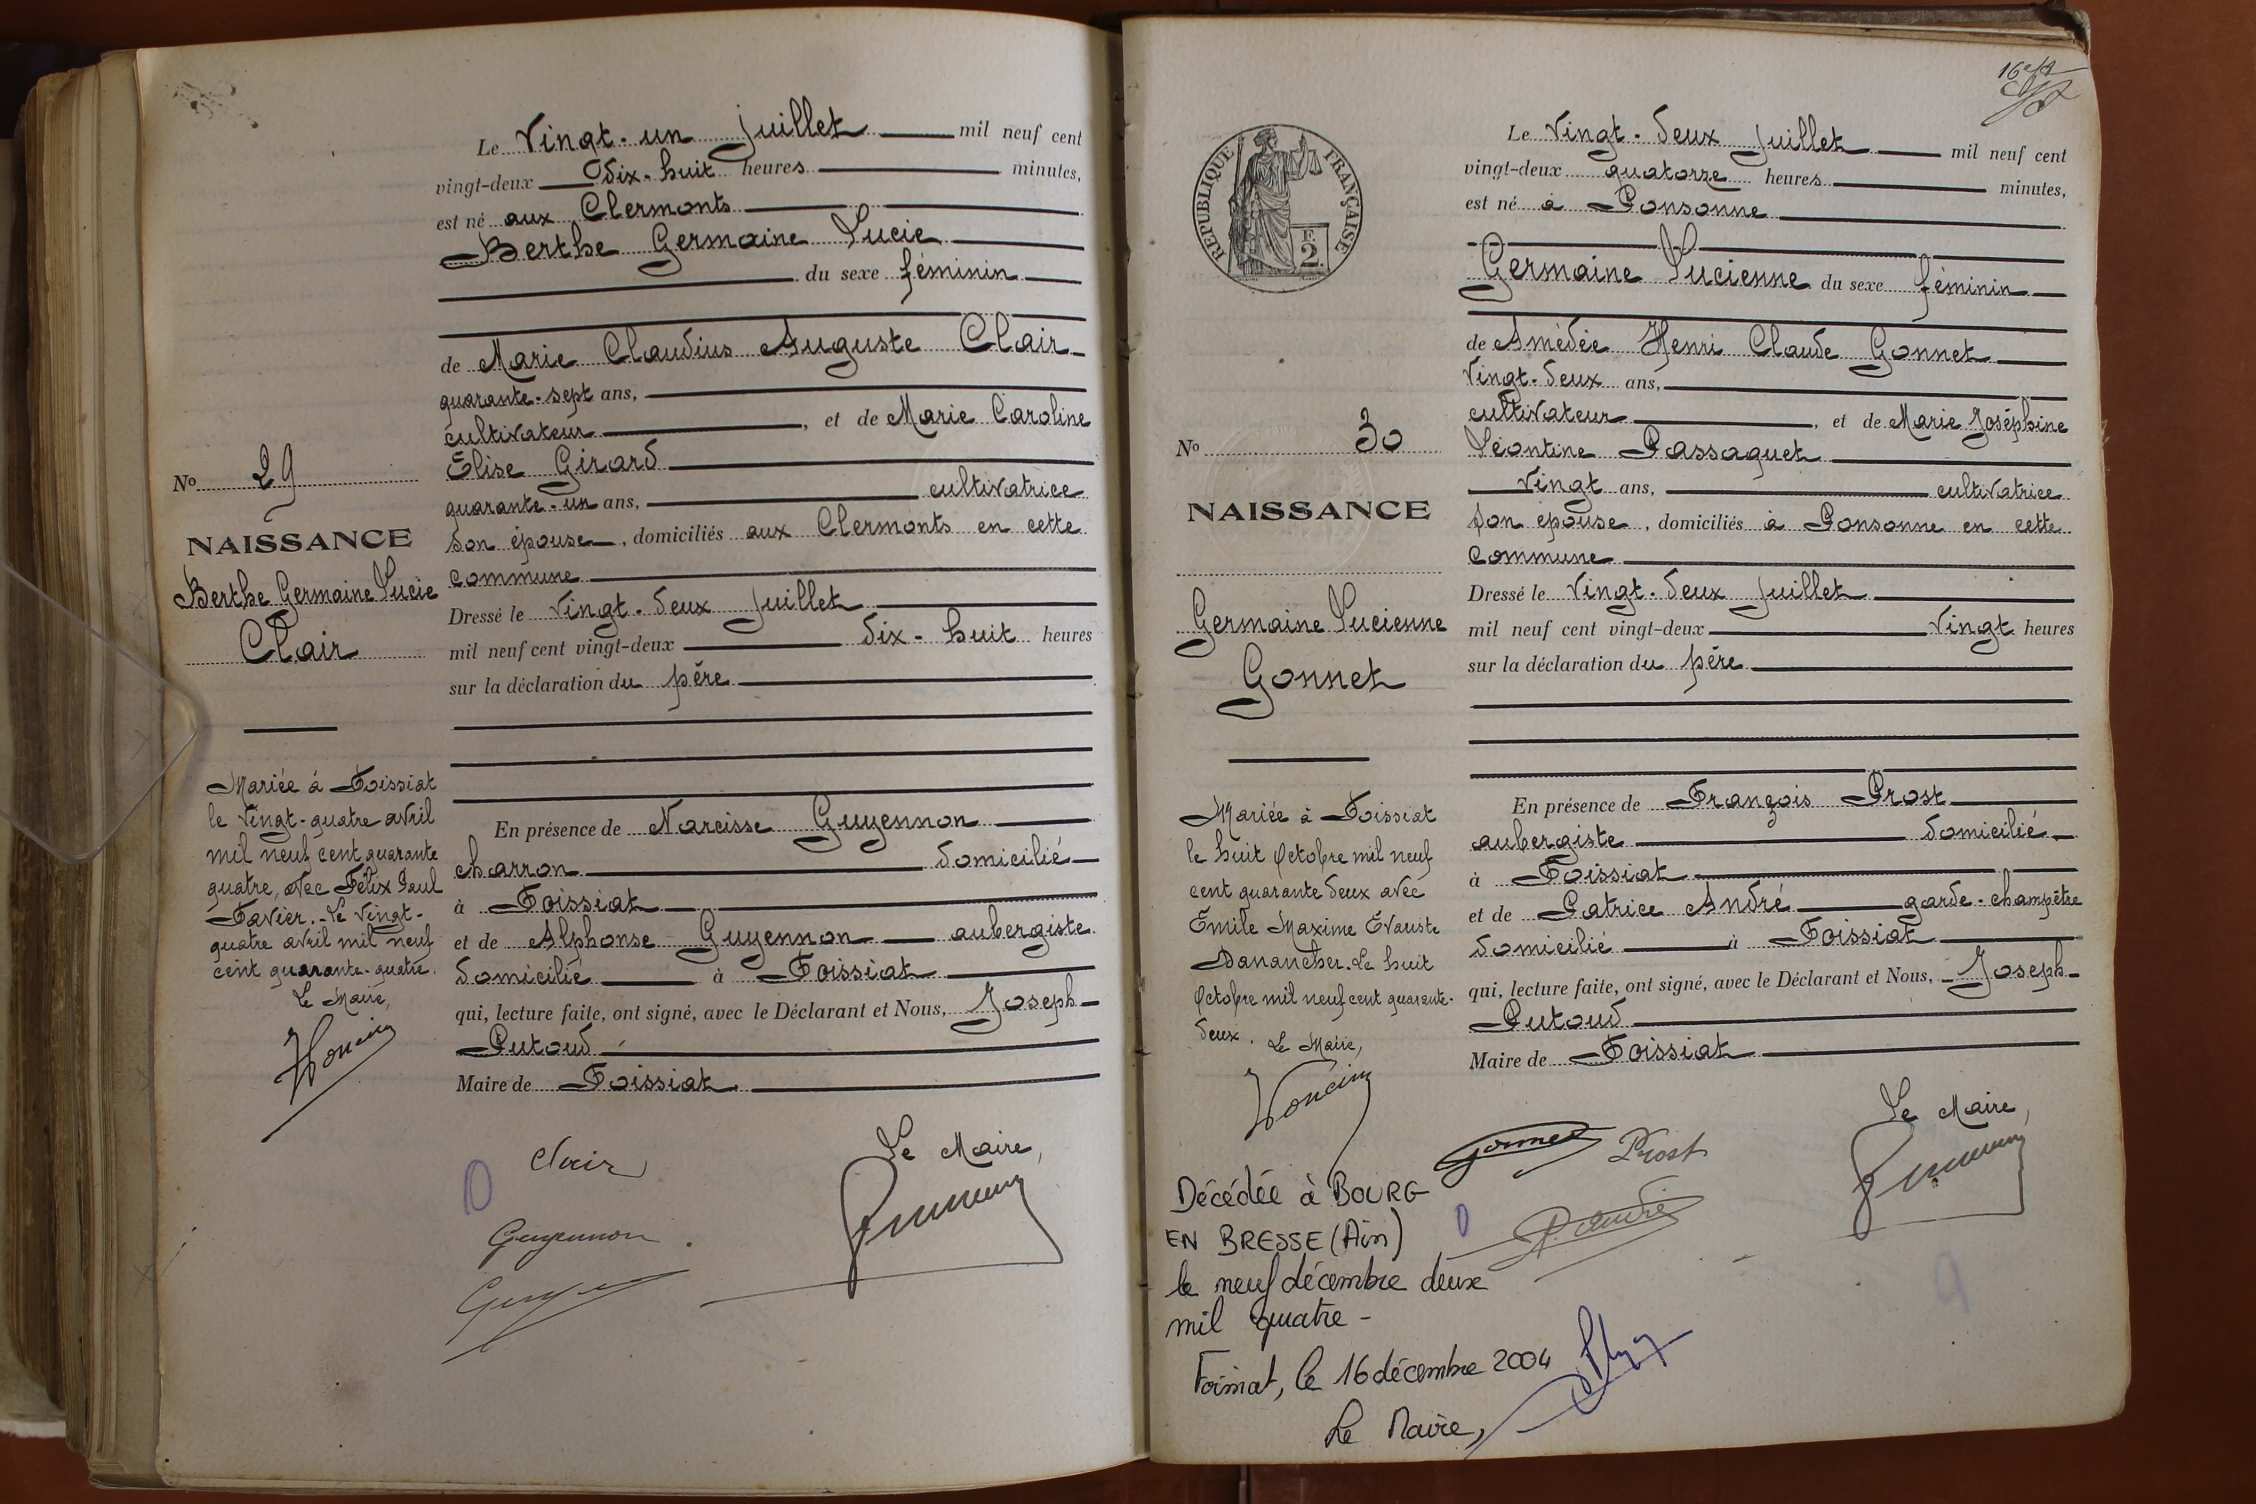 Le Vingt-un juillet mil neuf cent
vingt-deux Dix-huit heures minutes,
est né aux Clermonts
Berthe Germaine Lucie
du sexe féminin
de Marie Claudius Auguste Clair
quarante-sept ans,
cultivateur, et de Marie Caroline
Élise Girard
quarante-un ans, cultivatrice
son épouse, domiciliés aux Clermonts en cette
commune
Dressé le Vingt-deux juillet
mil neuf cent vingt-deux dix-huit heures
sur la déclaration du père
En présence de Narcisse Guyennon
charron domicilié
à Foissiat
et de Alphonse Guyennon aubergiste
domicilié à Foissiat
qui, lecture faite, ont signé, avec le Déclarant et Nous, Joseph
Putoud
Maire de Foissiat
Le Maire,
Clair
Guyennon
No 29
NAISSANCE
Berthe Germaine Lucie
Clair
Mariée à Foissiat
le Vingt-quatre avril
mil neuf cent quarante
quatre, avec Félix Paul
Favier. Le Vingt-
quatre avril mil neuf
cent quarante-quatre.
Le Maire,
Le Vingt-deux juillet mil neuf cent
vingt-deux quatorze heures minutes,
est né à Ponsonne
Germaine Lucienne du sexe féminin
de Amédée Henri Claude Gonnet
Vingt-deux ans,
cultivateur, et de Marie Joséphine
Léontine Passaquet
Vingt ans, cultivatrice
son épouse, domiciliés à Ponsonne en cette
commune
Dressé le Vingt-deux juillet
mil neuf cent vingt-deux Vingt heures
sur la déclaration du père
En présence de François Prost
aubergiste domicilié
à Foissiat
et de Patrice André garde-champêtre
domicilié à Foissiat
qui, lecture faite, ont signé, avec le Déclarant et Nous, Joseph
Putoud
Maire de Foissiat
Le Maire,
Gonnet Prost
P. André
RÉPUBLIQUE FRANÇAISE
F.
2
No 30
NAISSANCE
Germaine Lucienne
Gonnet
Mariée à Foissiat
le huit Octobre mil neuf
cent quarante deux avec
Emile Maxime Evariste
Danancher. Le huit
Octobre mil neuf cent quarante-
deux. Le Maire,
Décédée à BOURG
EN BRESSE (Ain)
le neuf décembre deux
mil quatre -
Foissiat, le 16 décembre 2004
Le Maire,